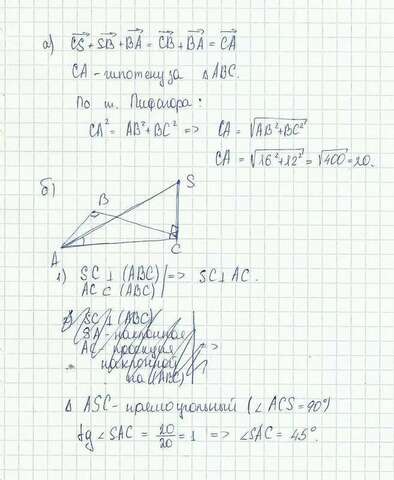 а) CS + SB + BA = CB + BA = CA
CA - гипотенуза ΔABC.
По т. Пифагора:
CA² = AB² + BC² => CA = √AB²+BC²
CA = √16²+12² = √400 = 20.
б)
S
B
A
C
1) SC ⊥ (ABC) | => SC ⊥ AC.
AC ⊂ (ABC)
SC ⊥ (ABC)
SA - наклонная
AC - проекция =>
наклонной
на (ABC)
Δ ASC - прямоугольный (∠ACS = 90°)
tg ∠SAC = 20/20 = 1 => ∠SAC = 45°.